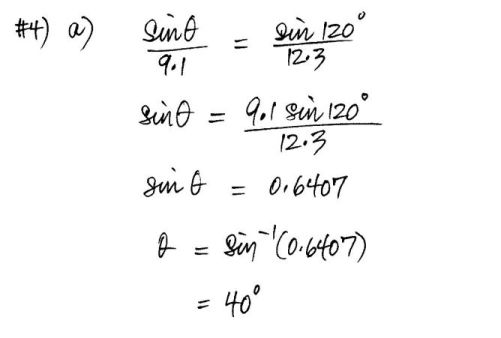 #4) a) sinθ/9.1 = sin 120°/12.3
sinθ = 9.1 sin 120°/12.3
sin θ = 0.6407
θ = sin⁻¹(0.6407)
= 40°